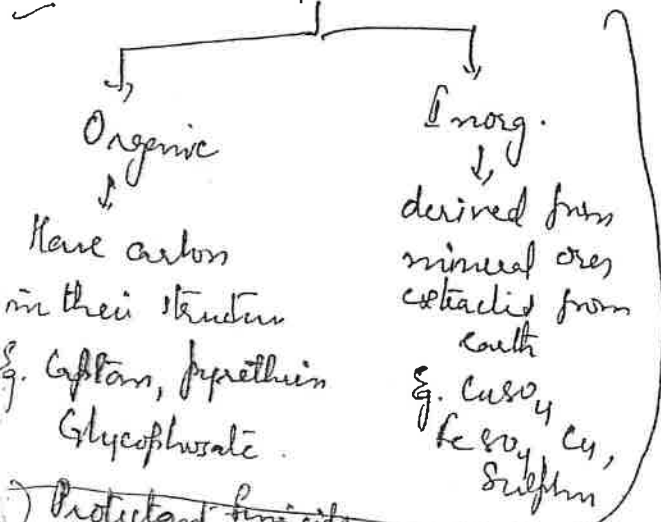 Organic
Have carbon
in their structure
Eg. Captan, pyrethrin
Glycophosate.
Inorg.
derived from
mineral ores
extracted from
earth
Eg. CuSO4
FeSO4, Cu,
Sulphur
) Protectant fungicide